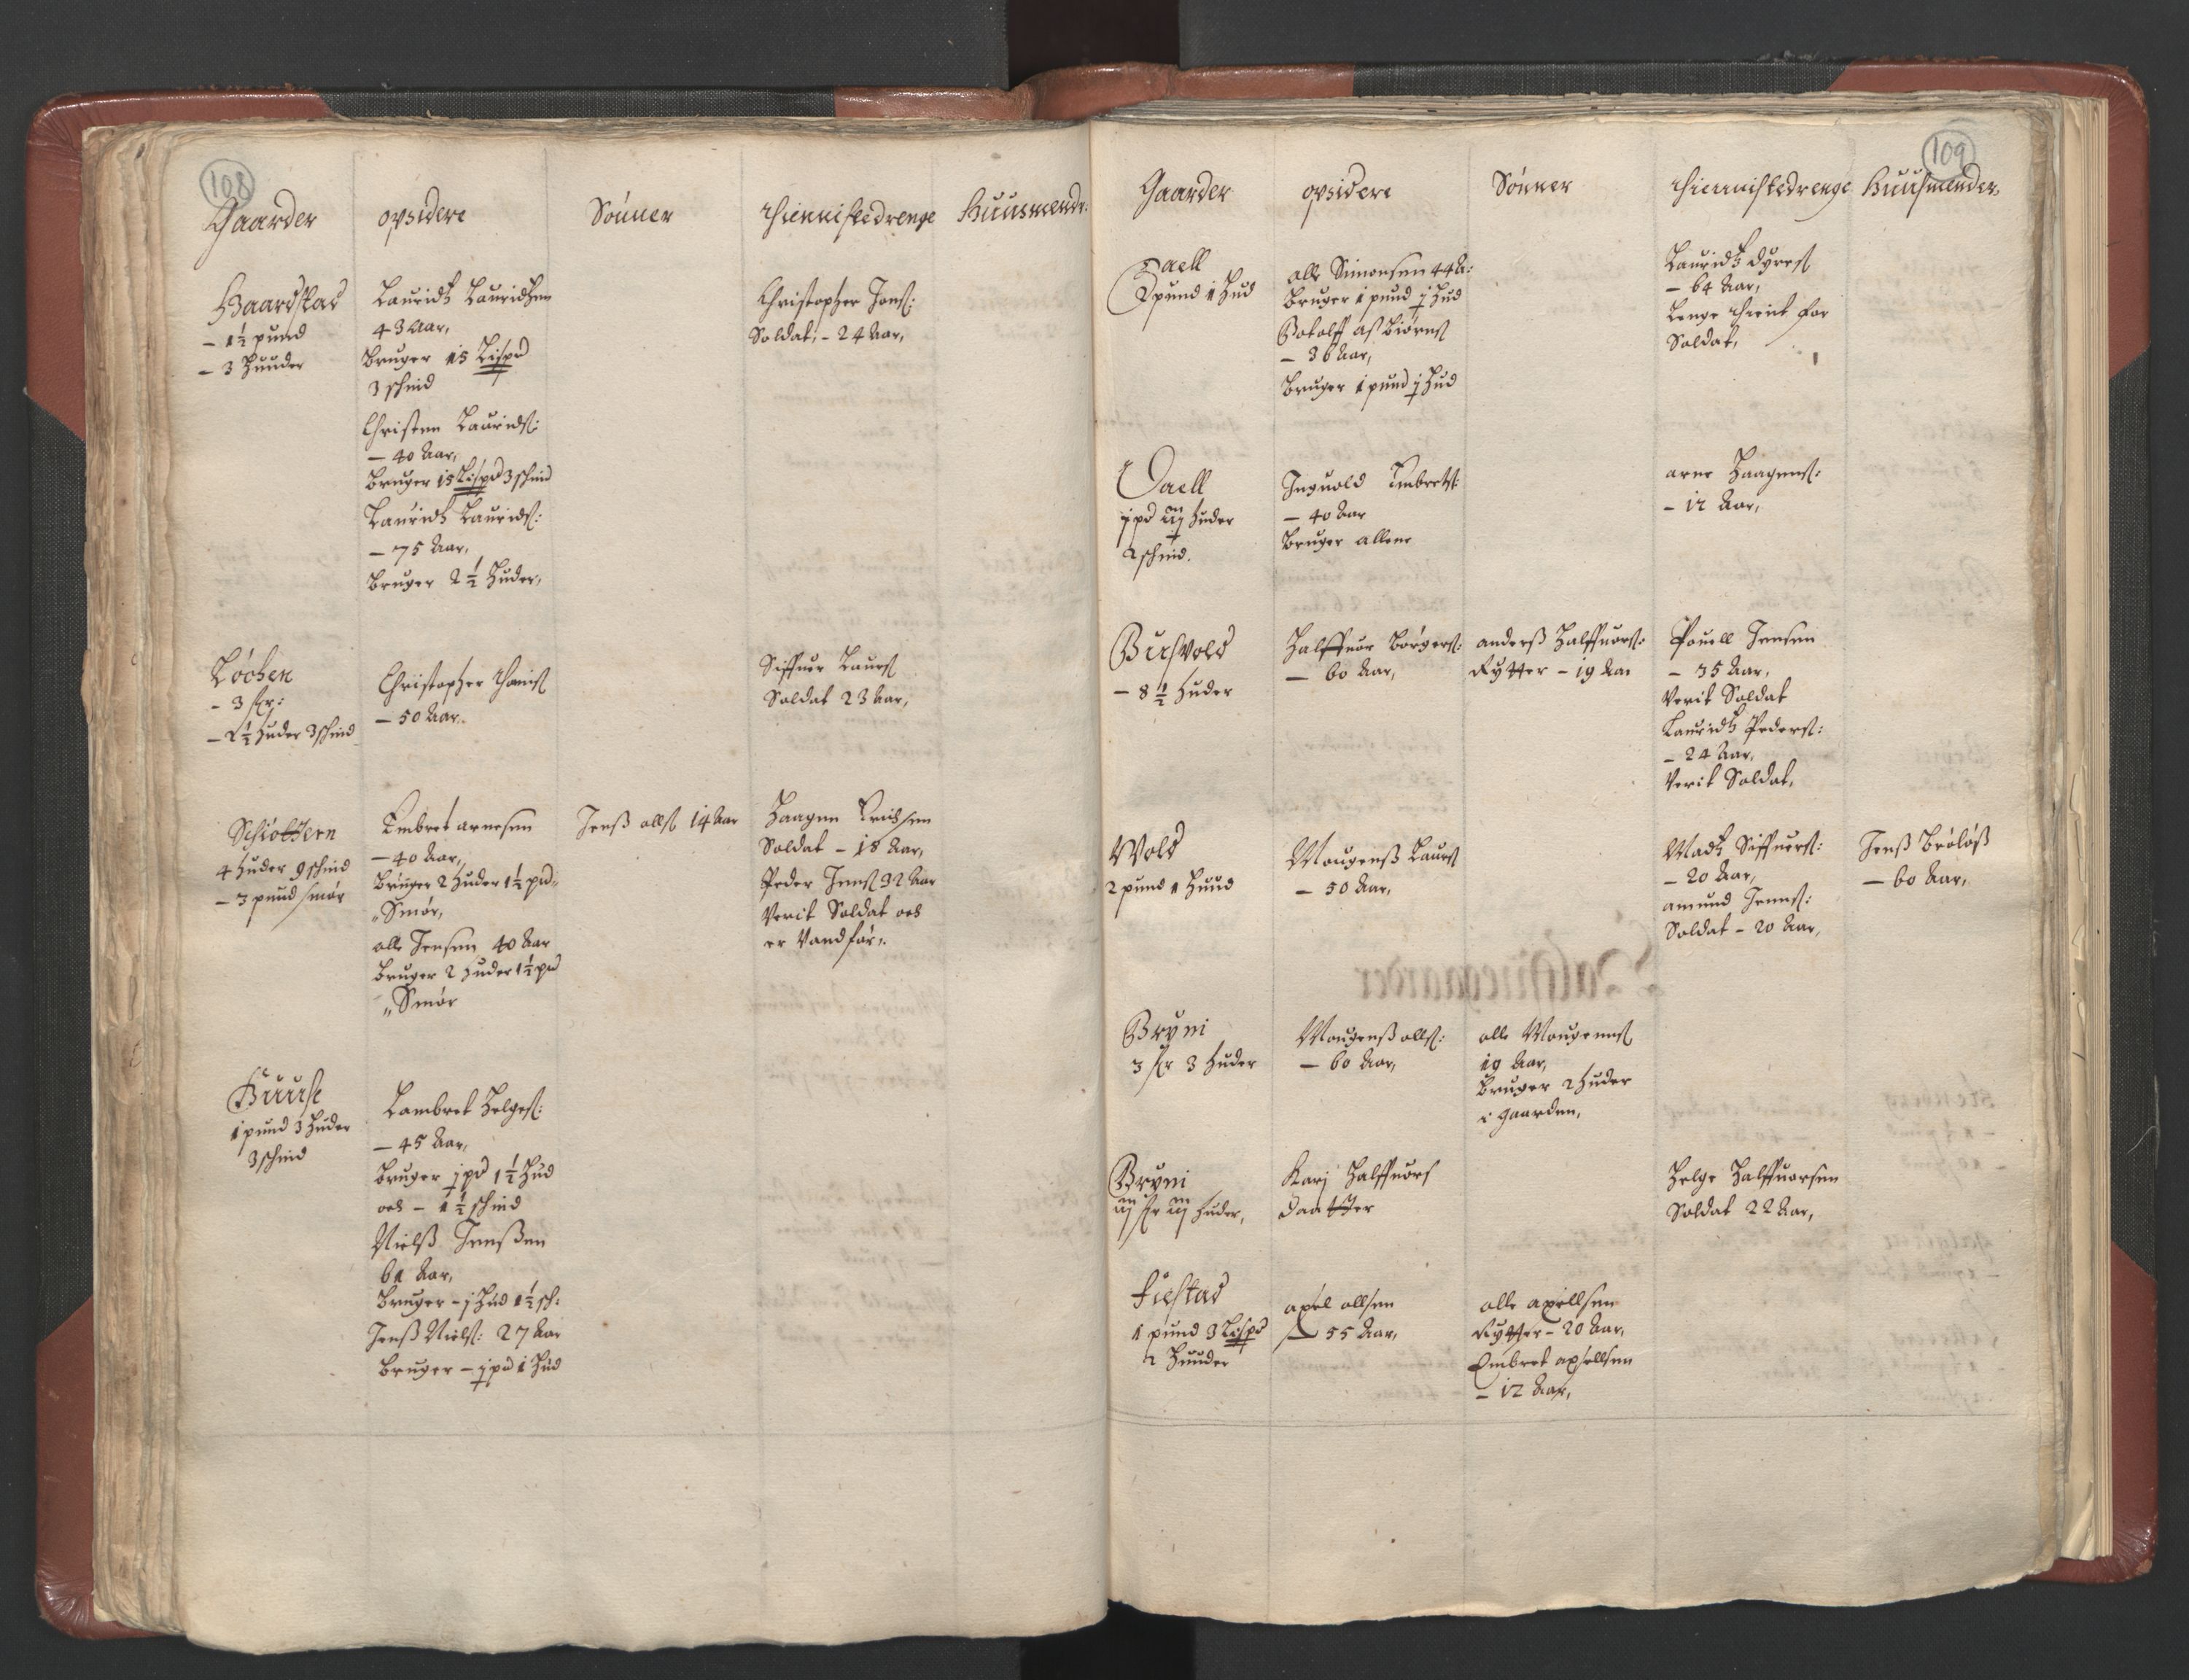 108
Gaarder opsidere Sönner thiennistedrenge Huusmendr:
Baardstad
- 1½ pund
- 3 Huuder
Lauridtz Lauridtzen
43 Aar,
Bruger 15 Lispd
3 schind
Christen Lauridtz:
- 40 Aar,
Bruger 15 Lispd 3 schind
Lauridtz Lauridtz:
- 75 Aar,
Bruger 2½ Huder,
Christopher Jenß:
Soldat, - 24 Aar,
Löchen
- 3 skr:
- 2½ Huder 3 schind
Christopher
- 50 Aar.
Siffuer Laurß
Soldat 23 Aar,
Schiottern
4 Huder 9 schind
- 3 pund smör
Embret arnesen
- 40 Aar,
Bruger 2 Huder 1½ pd.
Smör,
olle Jensen 40 Aar
Bruger 2 Huder 1½ pd
Smör
Jenß ollß 14 Aar
Haagen Erichsen
Soldat - 18 Aar,
Peder Jenß 32 Aar
Verit Soldat och
er Vandför.
Huuse
1 pund 3 Huder
3 schind
Lambret Helgeß:
- 45 Aar,
Bruger j pd 1½ Hud
och - 1½ schind
Nielß Jenßen
61 Aar,
Bruger - j Hud 1½ sch:
Jenß Nielß: 27 Aar
Bruger - j pd 1 Hud
109
Gaarder opsidere Sönner thiennistedrenge Huusmender
Daell
2 pund 1 Hud
olle Simonsen 44 A:
Bruger 1 pund j Hud
Botolff aßbiörnß
- 36 Aar,
Bruger 1 pund j Hud
Lauridtz dyreß
- 64 Aar,
Lenge thient for
Soldat,
Daell
j pd iij Huder
2 schind.
Inguold Embretß:
- 40 Aar
Bruger allene
arne Haagenß:
- 12 Aar,
Burßvold
- 8½ Huder
Halffuor Börgerß:
- 60 Aar,
anderß Halffuorß:
Rytter - 19 Aar
Pouell Jensen
- 35 Aar,
Verit Soldat
Lauridtz Pederß:
- 24 Aar,
Verit Soldat,
Wold
2 pund 1 Huud
Mougenß Laurß
- 50 Aar,
Madtz Siffuerß:
- 20 Aar,
amund Jenß:
Soldat - 20 Aar,
Jenß Brölöß
- 60 Aar,
Bryni
3 skr 3 Huder
Mougenß ollß:
- 60 Aar,
olle Mougenß
19 Aar,
Bruger 2 Huder
i gaarden,
Bryni
iij skr iij Huder,
Karj Halffuorß
daatter
Helge Halffuorsen
Soldat 22 Aar,
Fiestad
1 pund 3 Lispd
2 Huuder
axel ollsen
- 55 Aar,
olle axellsen
Rytter - 20 Aar,
Embret axellsen
- 12 Aar,